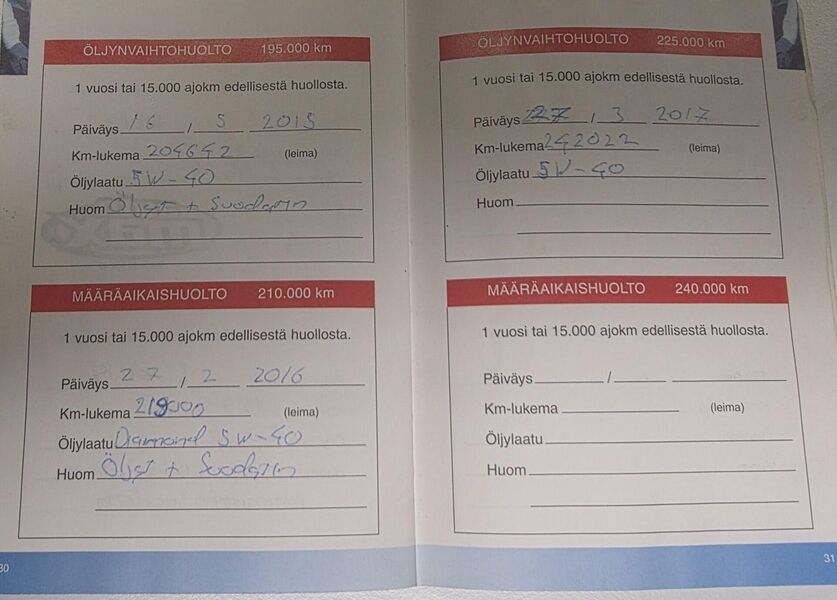 ÖLJYNVAIHTOHUOLTO 195.000 km
1 vuosi tai 15.000 ajokm edellisestä huollosta.
Päiväys 16 / 5 2015
Km-lukema 204642 (leima)
Öljylaatu 5W-40
Huom Öljyt + Suodatin
MÄÄRÄAIKAISHUOLTO 210.000 km
1 vuosi tai 15.000 ajokm edellisestä huollosta.
Päiväys 27 / 2 2016
Km-lukema 219000 (leima)
Öljylaatu Diamond 5W-40
Huom Öljyt + Suodatin
30
ÖLJYNVAIHTOHUOLTO 225.000 km
1 vuosi tai 15.000 ajokm edellisestä huollosta.
Päiväys 27 / 3 2017
Km-lukema 242022 (leima)
Öljylaatu 5W-40
Huom
MÄÄRÄAIKAISHUOLTO 240.000 km
1 vuosi tai 15.000 ajokm edellisestä huollosta.
Päiväys /
Km-lukema (leima)
Öljylaatu
Huom
31